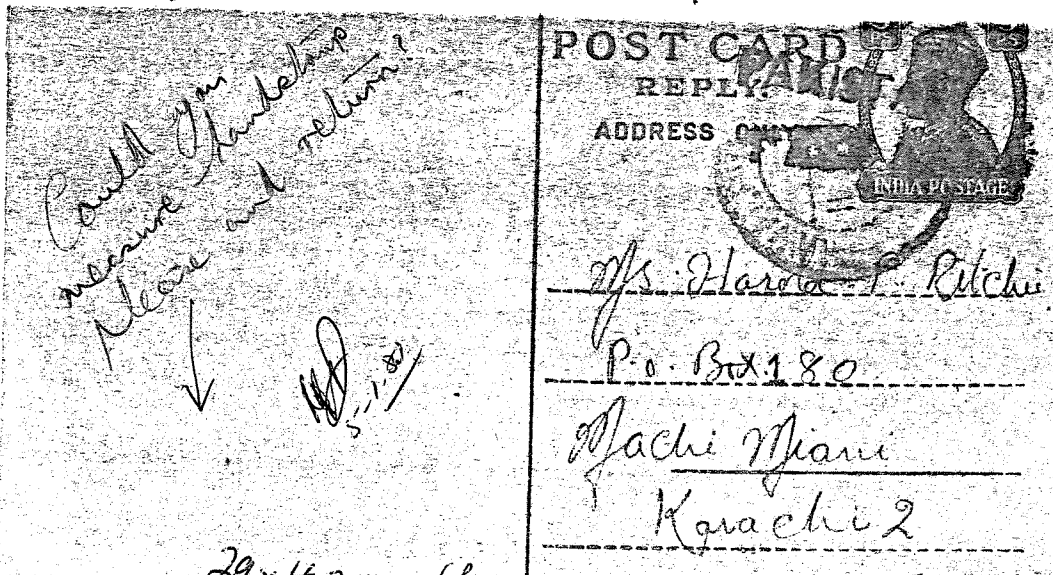 Could you
measure handstamp
please and return?
5-1-80
POST CARD
REPLY
ADDRESS
PAKIST
INDIA POSTAGE
M/s. Harold P. Ritchie
P.o. Box. 180
Machi Miani
Karachi 2